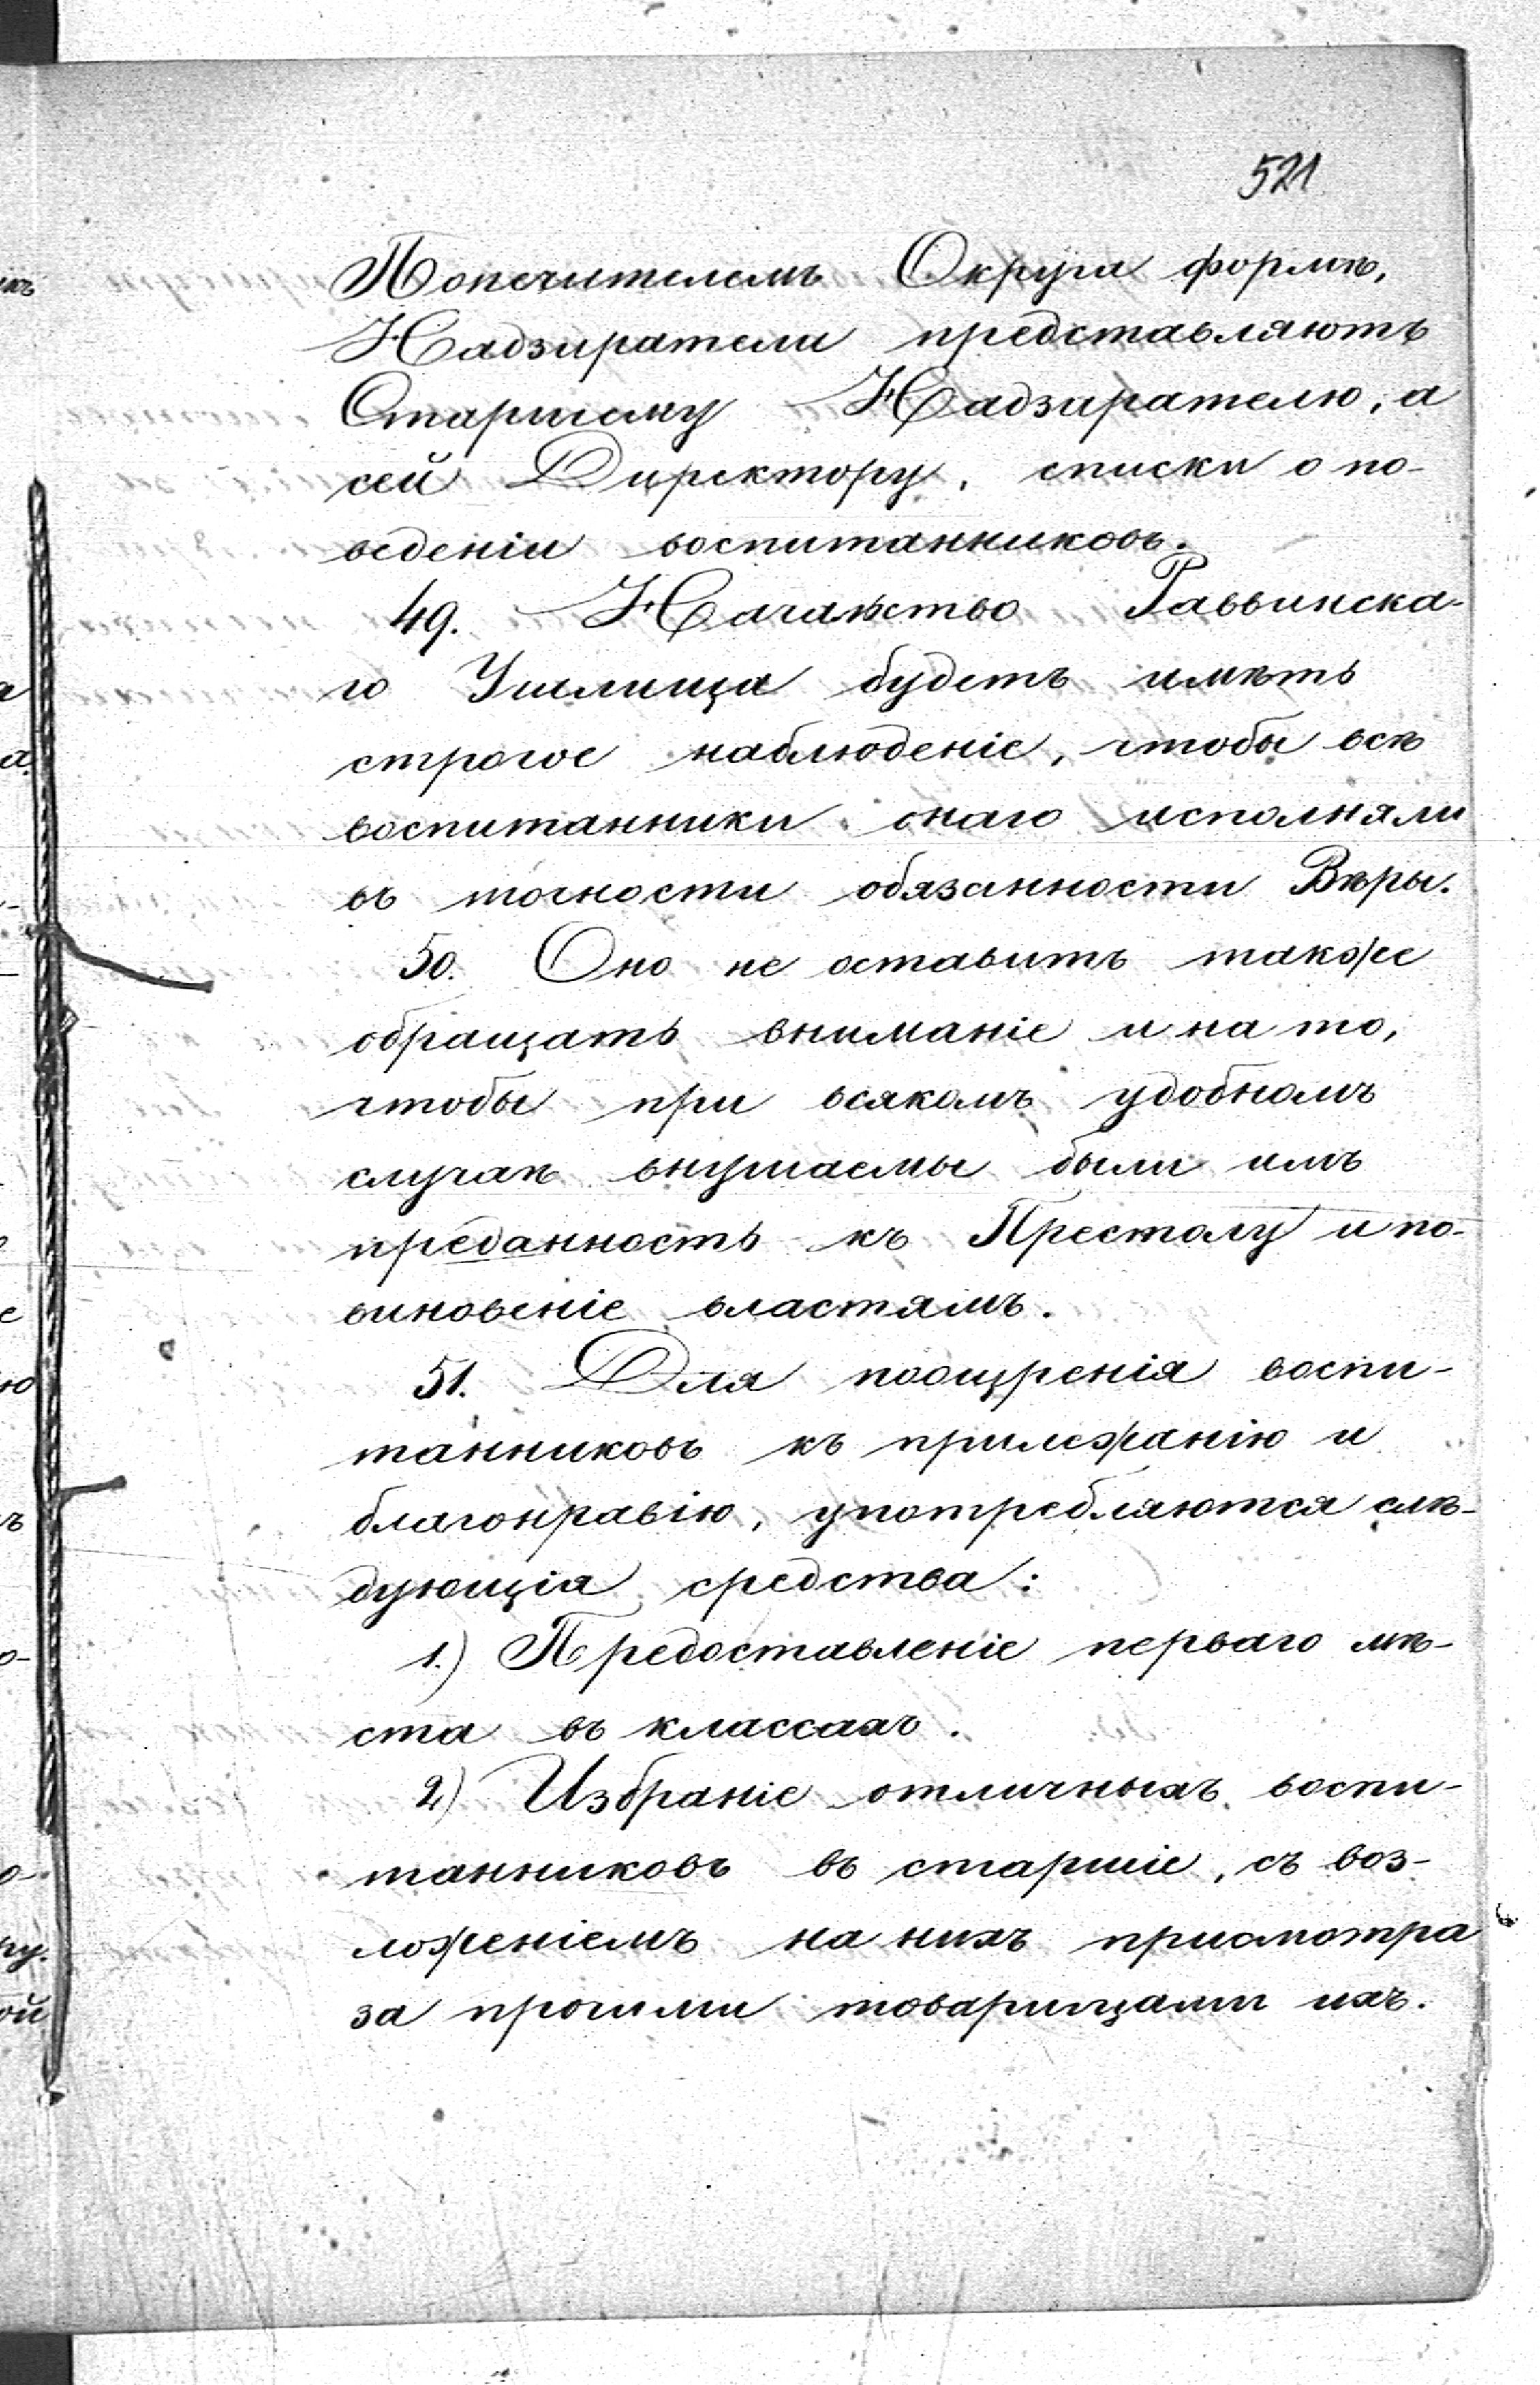 521
Попечителемъ Округа формѣ,
Надзиратели представляютъ
Старшему Надзирателю, а
сей Директору, списки о по-
веденіи воспитанниковъ.
49. Начальство Раввинска-
го Училища будетъ имѣть
строгое наблюденіе, чтобы всѣ
воспитанники онаго исполняли
въ точности обязанности Вѣры.
50. Оно не оставитъ также
обращать вниманіе и на то,
чтобы при всякомъ удобномъ
случаѣ внушаемы были имъ
преданность къ Престолу и по-
виновеніе властямъ.
51. Для поощренія воспи-
танниковъ къ прилежанію и
благонравію, употребляются слѣ-
дующія средства:
1.) Предоставленіе перваго мѣ-
ста въ классахъ.
2) Избраніе отличныхъ воспи-
танниковъ въ старшіе, съ воз-
ложеніемъ на нихъ присмотра
за прочими товарищами ихъ.